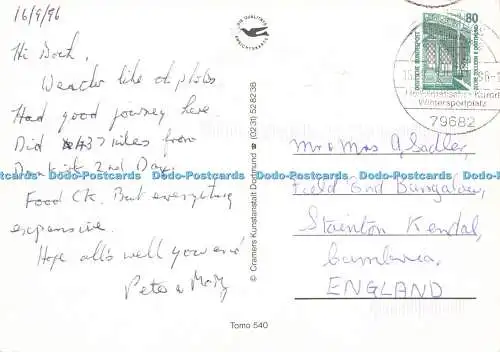 16/9/96
Hi Both,
Weather like at photo
Had good journey here
Did 437 miles from
2nd Day.
Food OK. But everything
expensive.
Hope all's well your end
Peter
DIE QUALITÄTS
ANSICHTSKARTE
© Cramers Kunstanstalt Dortmund ☎ (02 31) 52 82 38
Tomo 540
80
DEUTSCHE BUNDESPOST
Wintersportplatz
79682
Mr & Mrs A, Sadler,
Field End Bungalow,
Stainton Kendal,
Cumbria,
ENGLAND
Dodo-Postcards Dodo-Postcards Dodo-Postcards Dodo-Postcards Dodo-Postcards